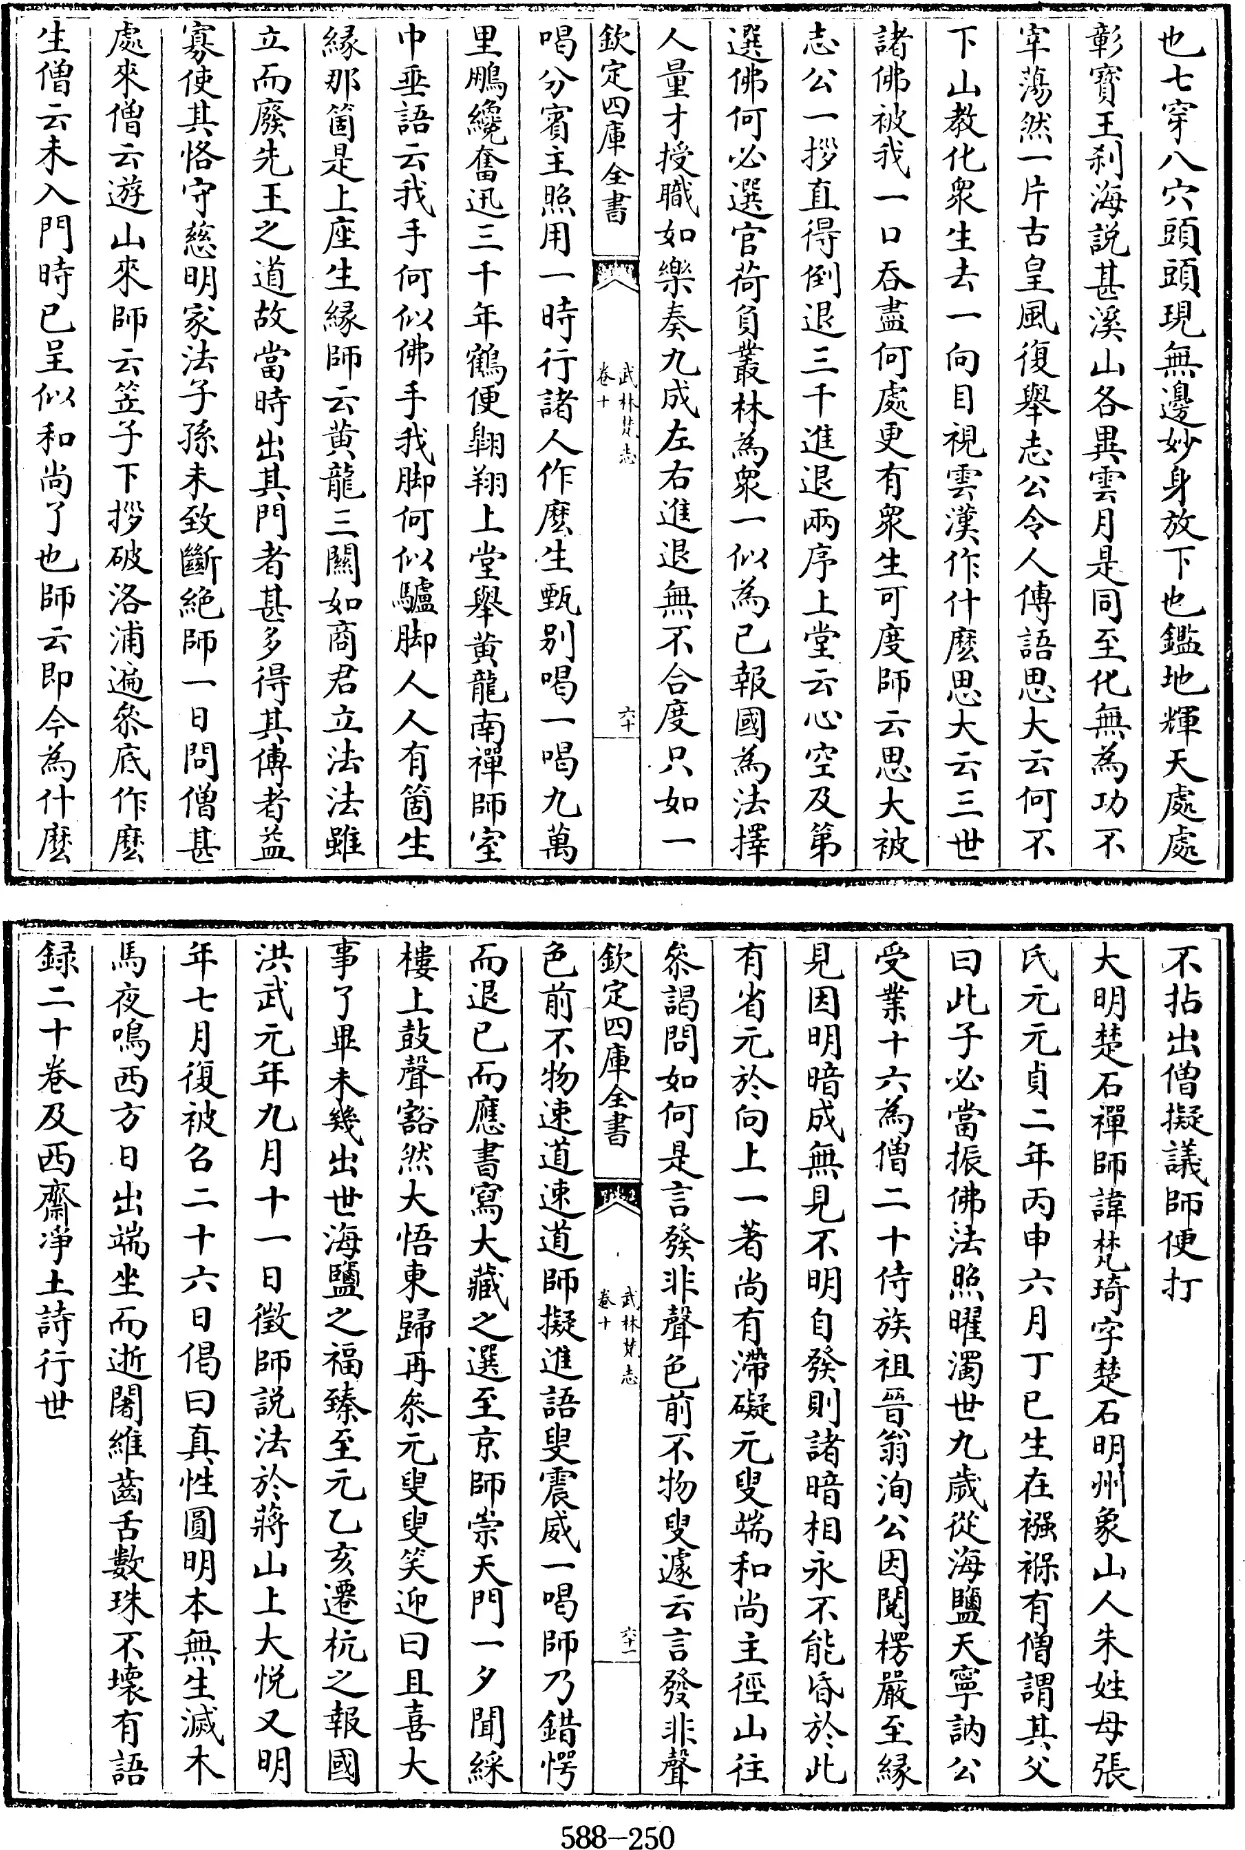 也七穿八穴頭頭現無邊妙身放下也鑑地輝天處處
彰寳王刹海説甚溪山各異雲月是同至化無為功不
宰蕩然一片古皇風復舉志公令人傳語思大云何不
下山教化衆生去一向目視雲漢作什麽思大云三世
諸佛被我一口吞盡何處更有衆生可度師云思大被
志公一拶直得倒退三千進退兩序上堂云心空及第
選佛何必選官荷負叢林為衆一似為己報國為法擇
人量才授職如樂奏九成左右進退無不合度只如一
欽定四庫全書
武林梵志
卷十
六十
喝分賓主照用一時行諸人作麽生甄别喝一喝九萬
里鵬纔奮迅三千年鶴便翺翔上堂舉黄龍南禪師室
中垂語云我手何似佛手我脚何似驢脚人人有箇生
縁那箇是上座生縁師云黄龍三關如商君立法法雖
立而廢先王之道故當時出其門者甚多得其傳者益
寡使其恪守慈明家法子孫未致斷絶師一日問僧甚
處來僧云遊山來師云笠子下拶破洛浦遍參底作麽
生僧云未入門時已呈似和尚了也師云即今為什麽
不拈出僧擬議師便打
大明楚石禪師諱梵琦字楚石明州象山人朱姓母張
氏元元貞二年丙申六月丁巳生在襁褓有僧謂其父
曰此子必當振佛法照曜濁世九歲從海鹽天寧訥公
受業十六為僧二十侍族祖晉翁洵公因閲楞嚴至縁
見因明暗成無見不明自發則諸暗相永不能昏於此
有省元於向上一著尚有滯礙元叟端和尚主徑山往
參謁問如何是言發非聲色前不物叟遽云言發非聲
欽定四庫全書
武林梵志
卷十
六十一
色前不物速道速道師擬進語叟震威一喝師乃錯愕
而退已而應書寫大藏之選至京師崇天門一夕聞綵
樓上鼓聲豁然大悟東歸再參元叟叟笑迎曰且喜大
事了畢未幾出世海鹽之福臻至元乙亥遷杭之報國
洪武元年九月十一日徵師説法於蔣山上大悦又明
年七月復被召二十六日偈曰真性圓明本無生滅木
馬夜鳴西方日出端坐而逝闍維齒舌數珠不壞有語
録二十巻及西齋淨土詩行世
588-250